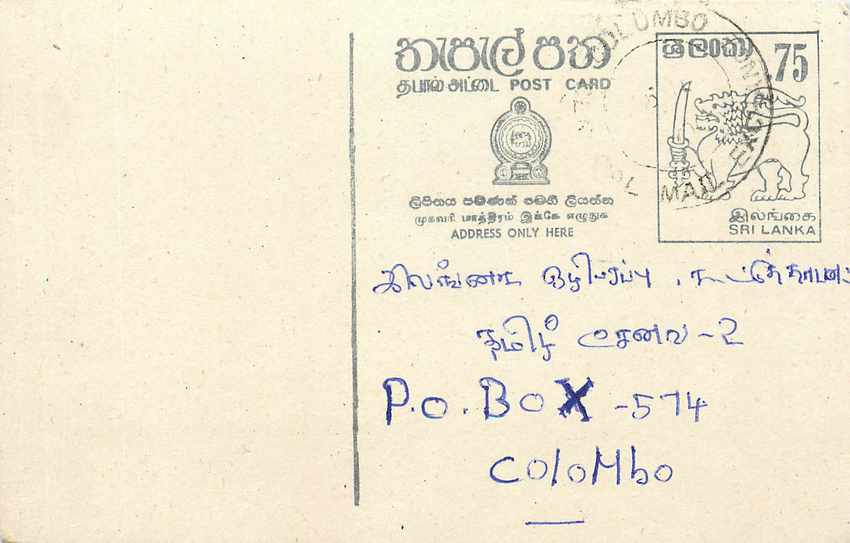 තැපැල් පත
தபால் அட்டை POST CARD
ලිපිනය පමණක් මෙහි ලියන්න
முகவரி மாத்திரம் இங்கே எழுதுக
ADDRESS ONLY HERE
ශ්‍රී ලංකා .75
இலங்கை
SRI LANKA
COLUMBO
இலங்கை ஒழிபரப்பு
தமிழ் சேவை - 2
P.O. BOX - 574
COLOMbo